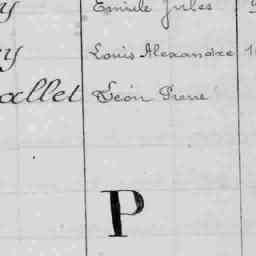 y Emile Jules
y Louis Alexandre 1
allet Léon Pierre
P